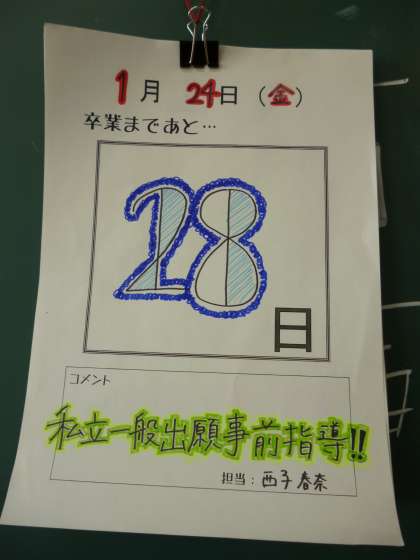 1月 24日（金）
卒業まであと…
28
日
コメント
私立一般出願事前指導!!
担当：西子 春奈